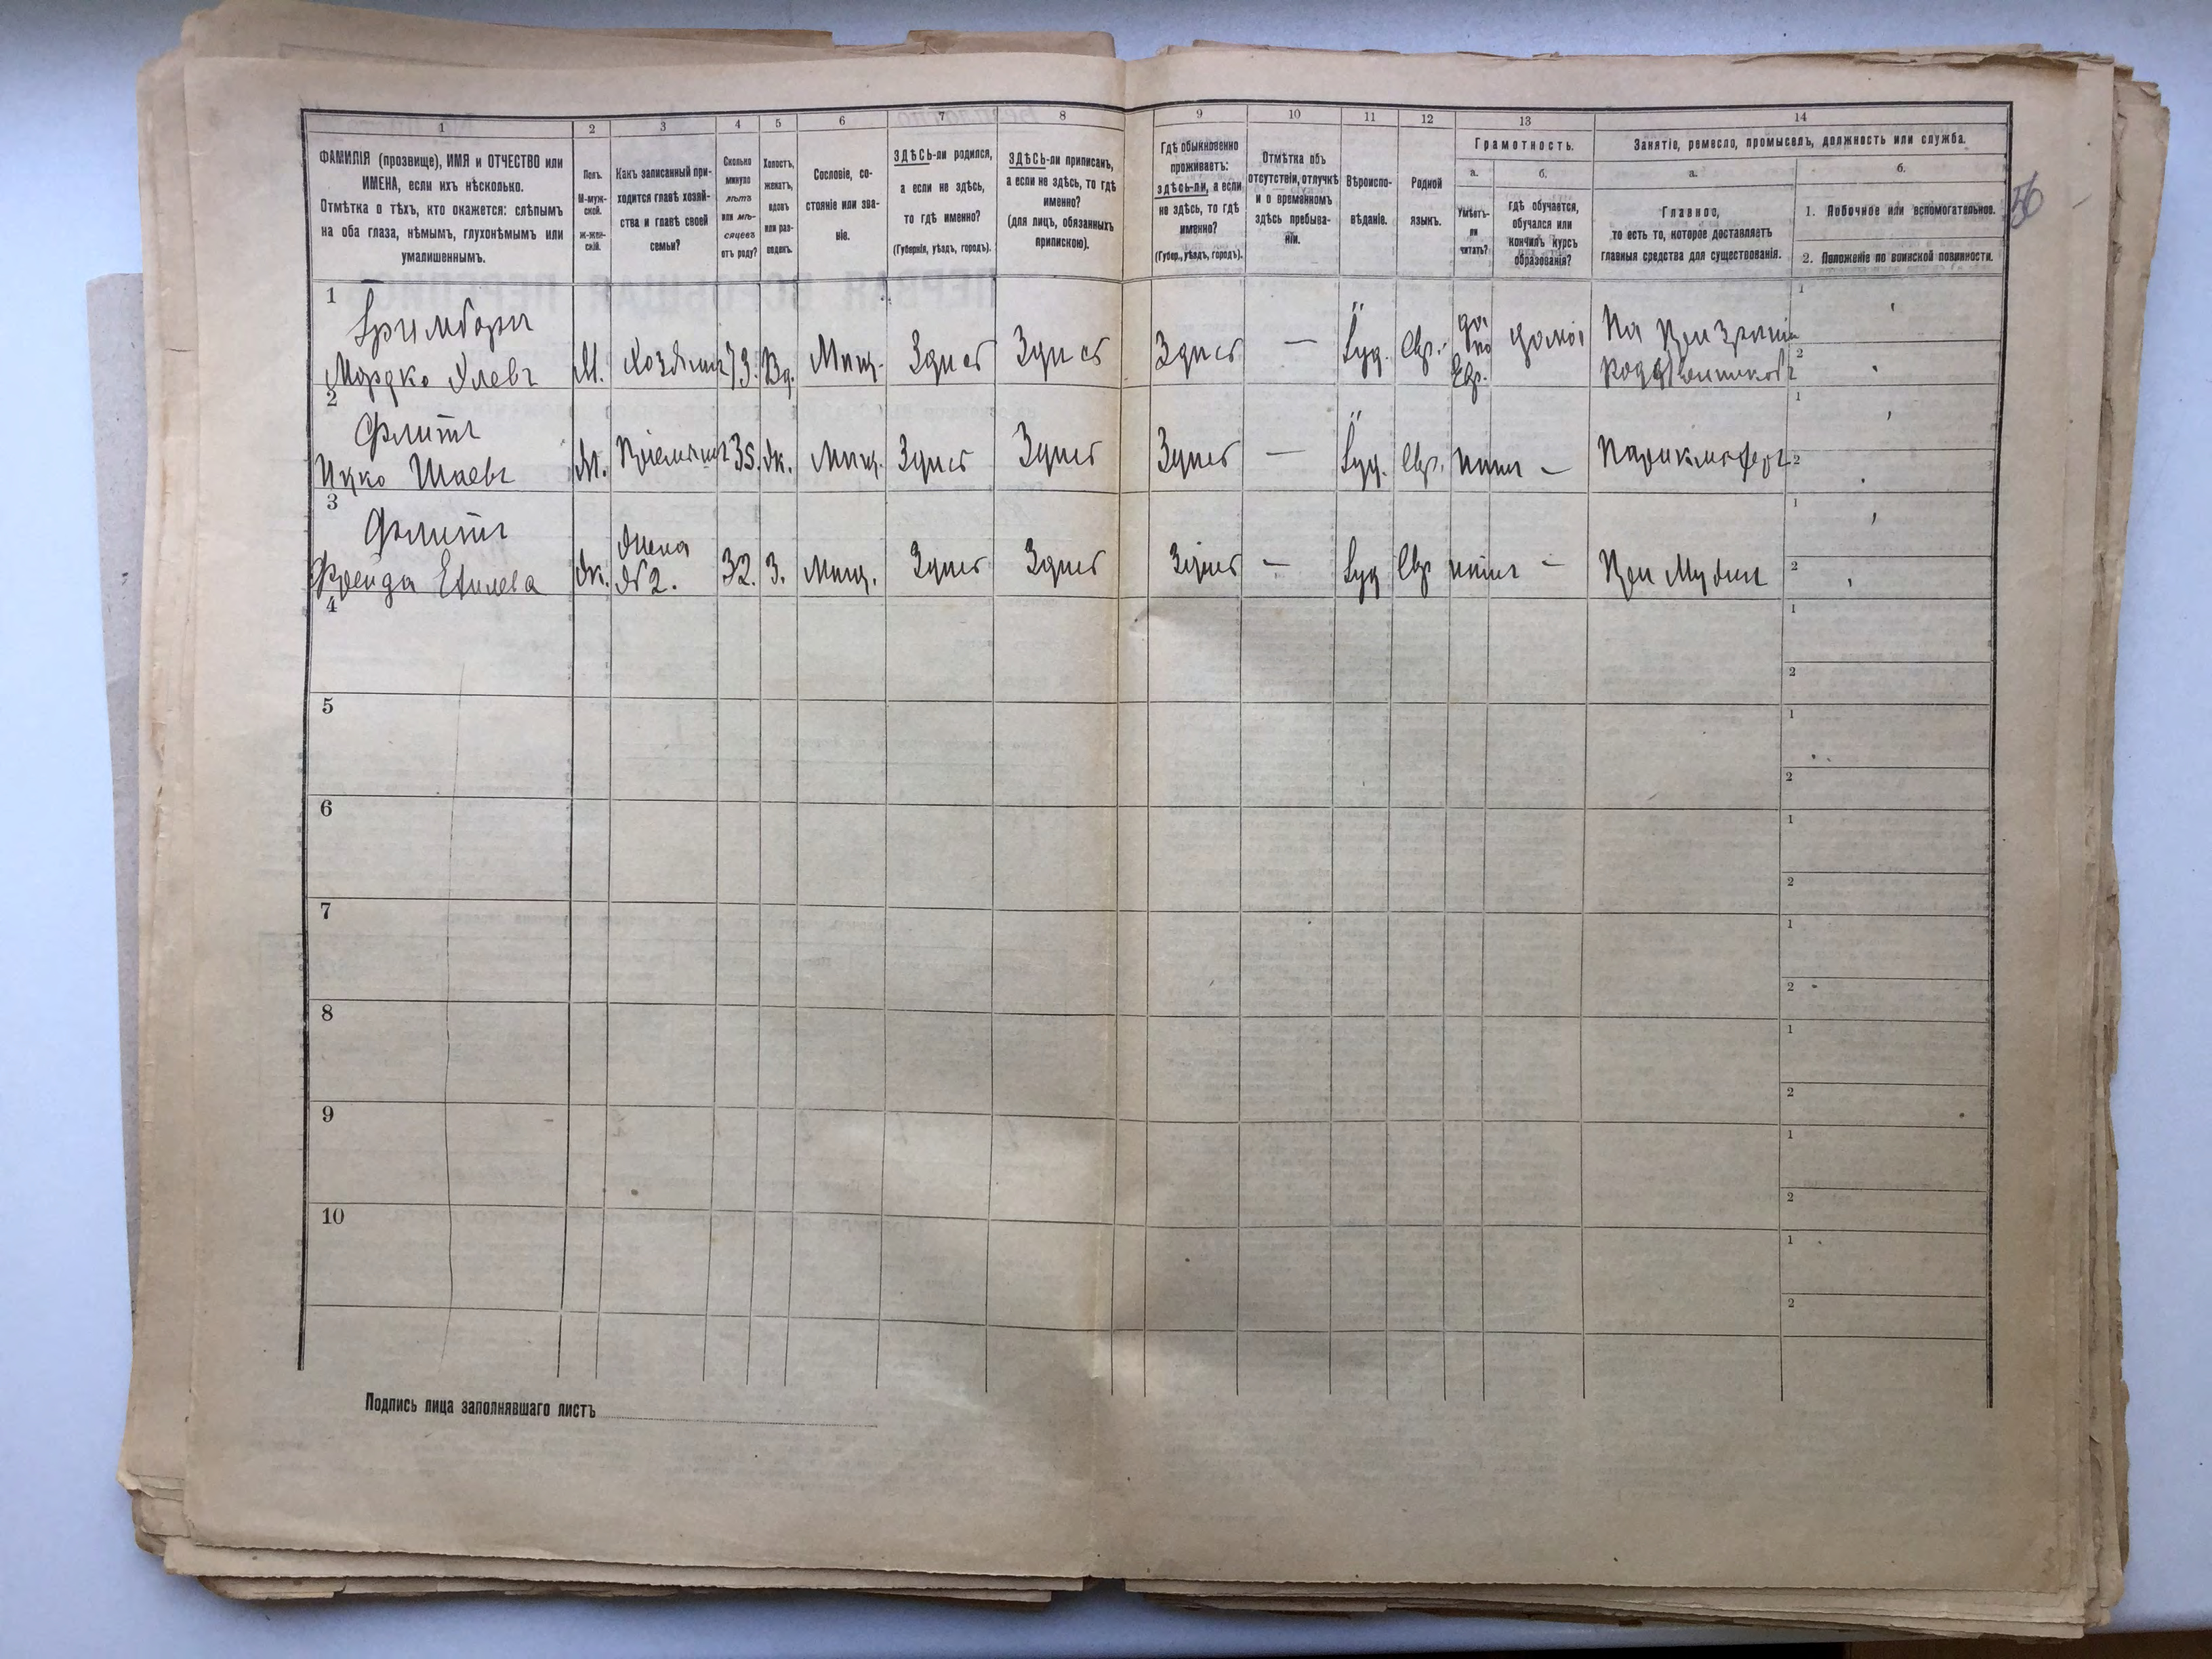 1
2
3
4
5
6
7
8
9
10
11
12
13
14
ФАМИЛІЯ (прозвище), ИМЯ и ОТЧЕСТВО или
ИМЕНА, если ихъ нѣсколько.
Отмѣтка о тѣхъ, кто окажется: слѣпымъ
на оба глаза, нѣмымъ, глухонѣмымъ или
умалишеннымъ.
Полъ.
М-муж-
ской.
Ж-жен-
скій.
Какъ записанный при-
ходится главѣ хозяй-
ства и главѣ своей
семьи?
Сколько
минуло
лѣтъ
или мѣ-
сяцевъ
отъ роду?
Холостъ,
женатъ,
вдовъ
или раз-
веденъ.
Сословіе, со-
стояніе или зва-
ніе.
ЗДѢСЬ-ли родился,
а если не здѣсь,
то гдѣ именно?
(Губернія, уѣздъ, городъ).
ЗДѢСЬ-ли приписанъ,
а если не здѣсь, то гдѣ
именно?
(для лицъ, обязанныхъ
припискою).
Гдѣ обыкновенно
проживаетъ:
здѣсь-ли, а если
не здѣсь, то гдѣ
именно?
(Губер., уѣздъ, городъ).
Отмѣтка объ
отсутствіи, отлучкѣ
и о временномъ
здѣсь пребыва-
ніи.
Вѣроиспо-
вѣданіе.
Родной
языкъ.
Грамотность.
а.
Умѣетъ-
ли
читать?
б.
гдѣ обучается,
обучался или
кончилъ курсъ
образованія?
Занятіе, ремесло, промыселъ, должность или служба.
а.
Главное,
то есть то, которое доставляетъ
главныя средства для существованія.
б.
1. Побочное или вспомогательное.
2. Положеніе по воинской повинности.
56
1
Гримбергъ
Мордко Хлевъ
М. Хозяинъ 73. Вд. Мѣщ. Здѣсь Здѣсь Здѣсь — Іуд. Евр.
да
по
Евр.
дома
На при
1
2
2
Флитъ
Ицко Шаевъ
М. 35. Ж. Мѣщ. Здѣсь Здѣсь Здѣсь — Іуд. Евр. нѣтъ — Парикмахеръ
1
2
3
Флитъ
Фрейда
Ж.
Жена
№ 2.
32. З. Мѣщ. Здѣсь Здѣсь Здѣсь — Іуд Евр нѣтъ — При Мужѣ
1
2
4
1
2
5
1
2
6
1
2
7
1
2
8
1
2
9
1
2
10
1
2
Подпись лица заполнявшаго листъ